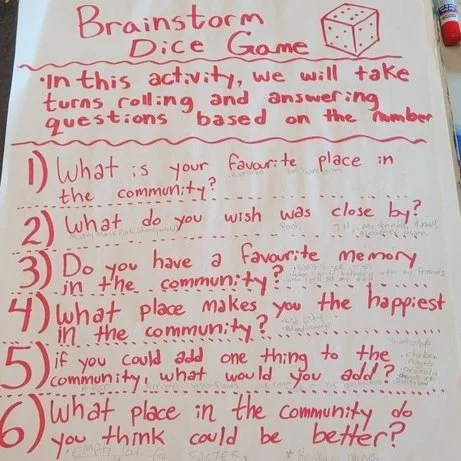 Brainstorm
Dice Game
·In this activity, we will take
turns rolling and answering
questions based on the number
1) What is your favourite place in
the community?
2) What do you wish was close by?
3) Do you have a favourite memory
in the community?
4) What place makes you the happiest
in the community?
5) if you could add one thing to the
community, what would you add?
6) What place in the community do
you think could be better?